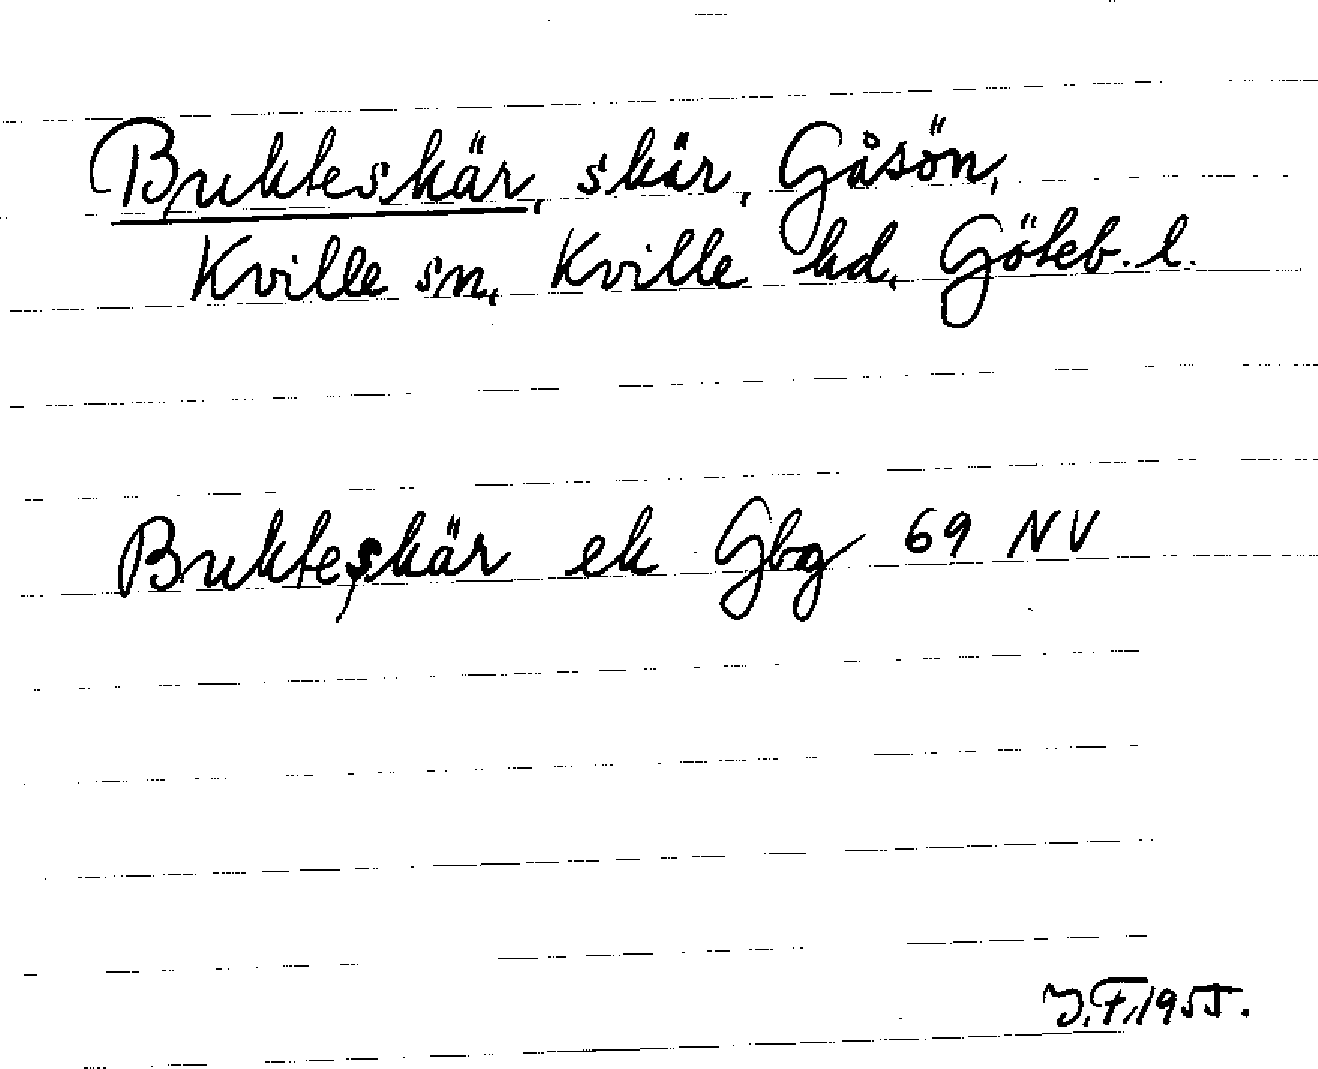 Bukteskär, skär, Gåsön,
Kville sn, Kville hd, Göteb. l.
Bukteskär ek Gbg 69 NV
I.F. 1955.